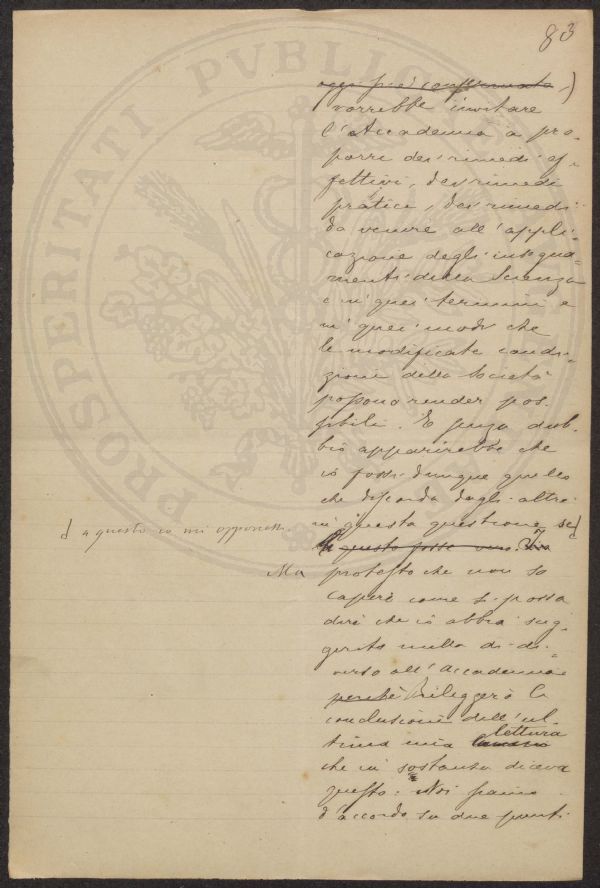 83
oggi fu confermata,)
vorrebbe invitare
l'Accademia a pro-
porre dei rimedi ef-
fettivi, dei rimedi
pratici, dei rimedi
da venire all'appli-
cazione degli insegna-
menti della Scienza
e in quei termini e
in quei modi che
le modificate condi-
zioni della Società
possono render pos-
sibili. E senza dub-
bio apparirebbe che
io fossi dunque quello
che discorda dagli altri
in questa questione, se
a questo io mi opponessi.
questo fosse vero.
Ma protesto che non so
capire come si possa
dire che io abbia sug-
gerito nulla di di-
verso all'Accademia
perchè rileggerò le
conclusioni dell'ul-
tima mia lettura
che in sostanza diceva
questo: Noi siamo
d'accordo su due punti
PROSPERITATI PVBLICAE